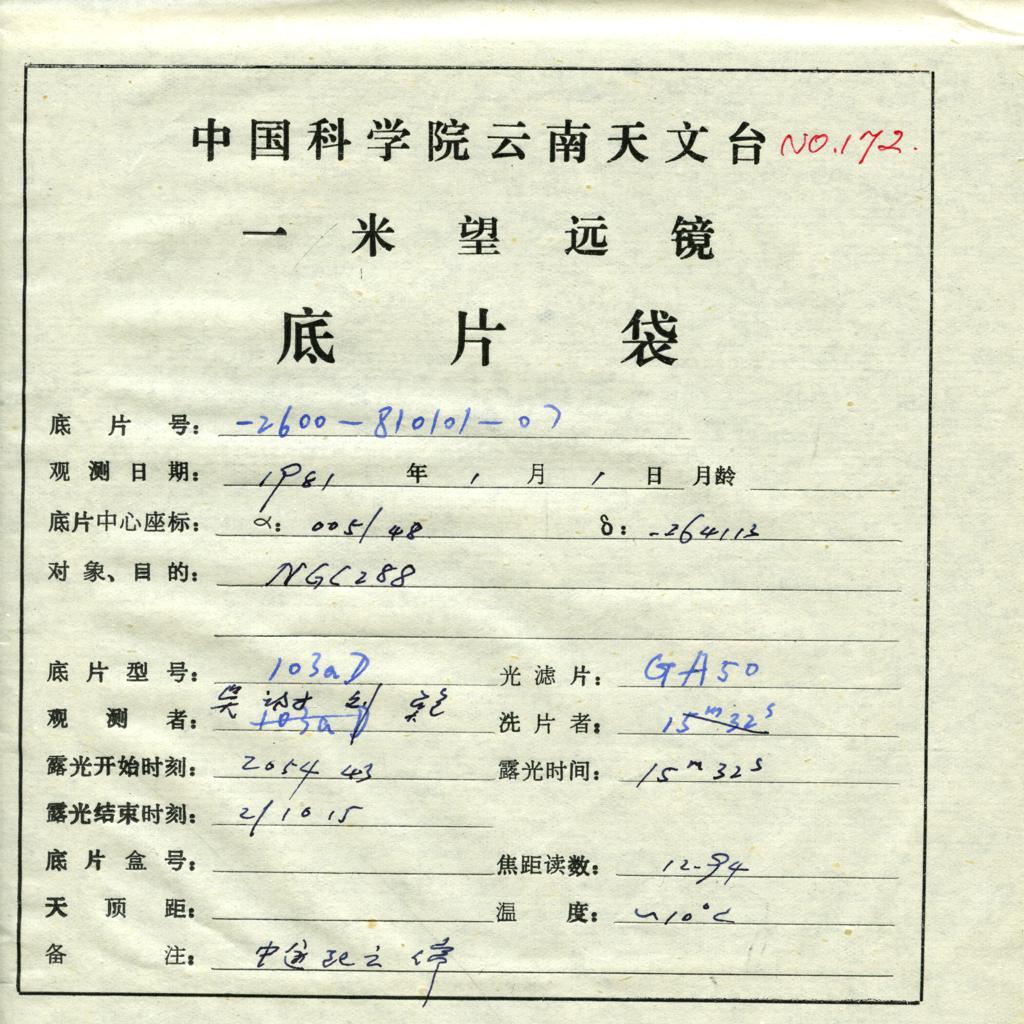 中国科学院云南天文台 NO.172.
一米望远镜
底片袋
底片号: -2600-810101-07
观测日期: 1981 年 1 月 1 日 月龄
底片中心座标: α: 005148 δ: -264113
对象、目的: NGC288
底片型号: 103aD 光滤片: GA50
观测者: 103aD 洗片者: 15m32s
露光开始时刻: 205443 露光时间: 15m32s
露光结束时刻: 211015
底片盒号: 焦距读数: 12.94
天顶距: 温度: ~10°C
备注: 中途 云 停